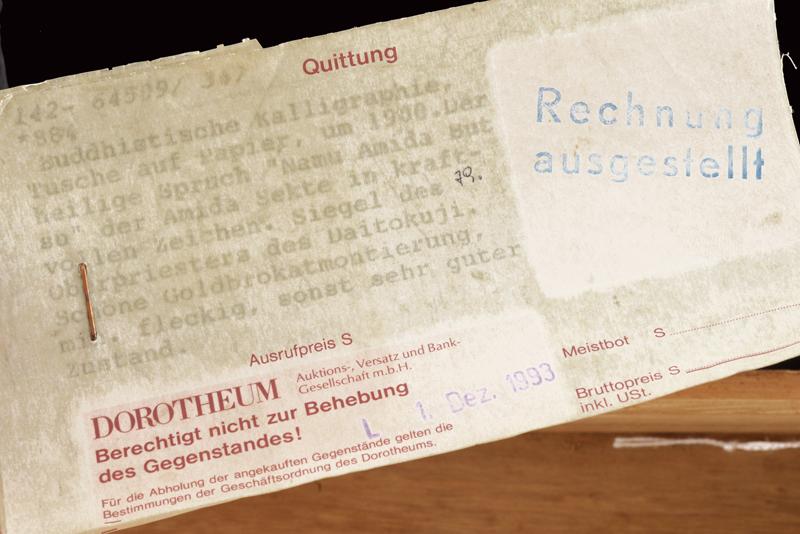 Quittung
142- 64509/ 347
*88
Buddhistische Kalligraphie,
Tusche auf Papier, um 1900.Der
heilige Spruch "Namu Amida But
so" der Amida Sekte in kraft-
79.
vollen Zeichen. Siegel des
Oberpriesters des Daitokuji.
Schöne Goldbrokatmontierung,
min. fleckig, sonst sehr guter
Zustand.
Rechnung
ausgestellt
Ausrufpreis S
Meistbot S
Bruttopreis S
inkl. USt.
DOROTHEUM
Auktions-, Versatz und Bank-
Gesellschaft m.b.H.
Berechtigt nicht zur Behebung
des Gegenstandes!
L 1. Dez. 1993
Für die Abholung der angekauften Gegenstände gelten die
Bestimmungen der Geschäftsordnung des Dorotheums.